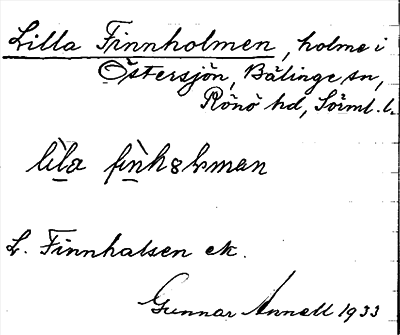 Lilla Finnholmen, holme i
Östersjön, Bälinge sn,
Rönö hd, Sörml. l.
lìla fìnhålman
L. Finnhalsen ek.
Gunnar Annell 1933